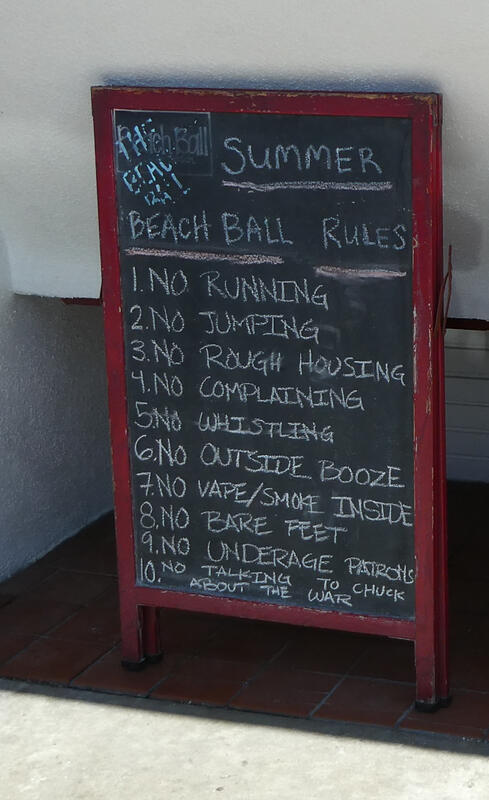 Beach Ball
SUMMER
BEACH BALL RULES
1. NO RUNNING
2. NO JUMPING
3. NO ROUGH HOUSING
4. NO COMPLAINING
5. NO WHISTLING
6. NO OUTSIDE BOOZE
7. NO VAPE/SMOKE INSIDE
8. NO BARE FEET
9. NO UNDERAGE PATRONS
10. NO TALKING TO CHUCK
ABOUT THE WAR